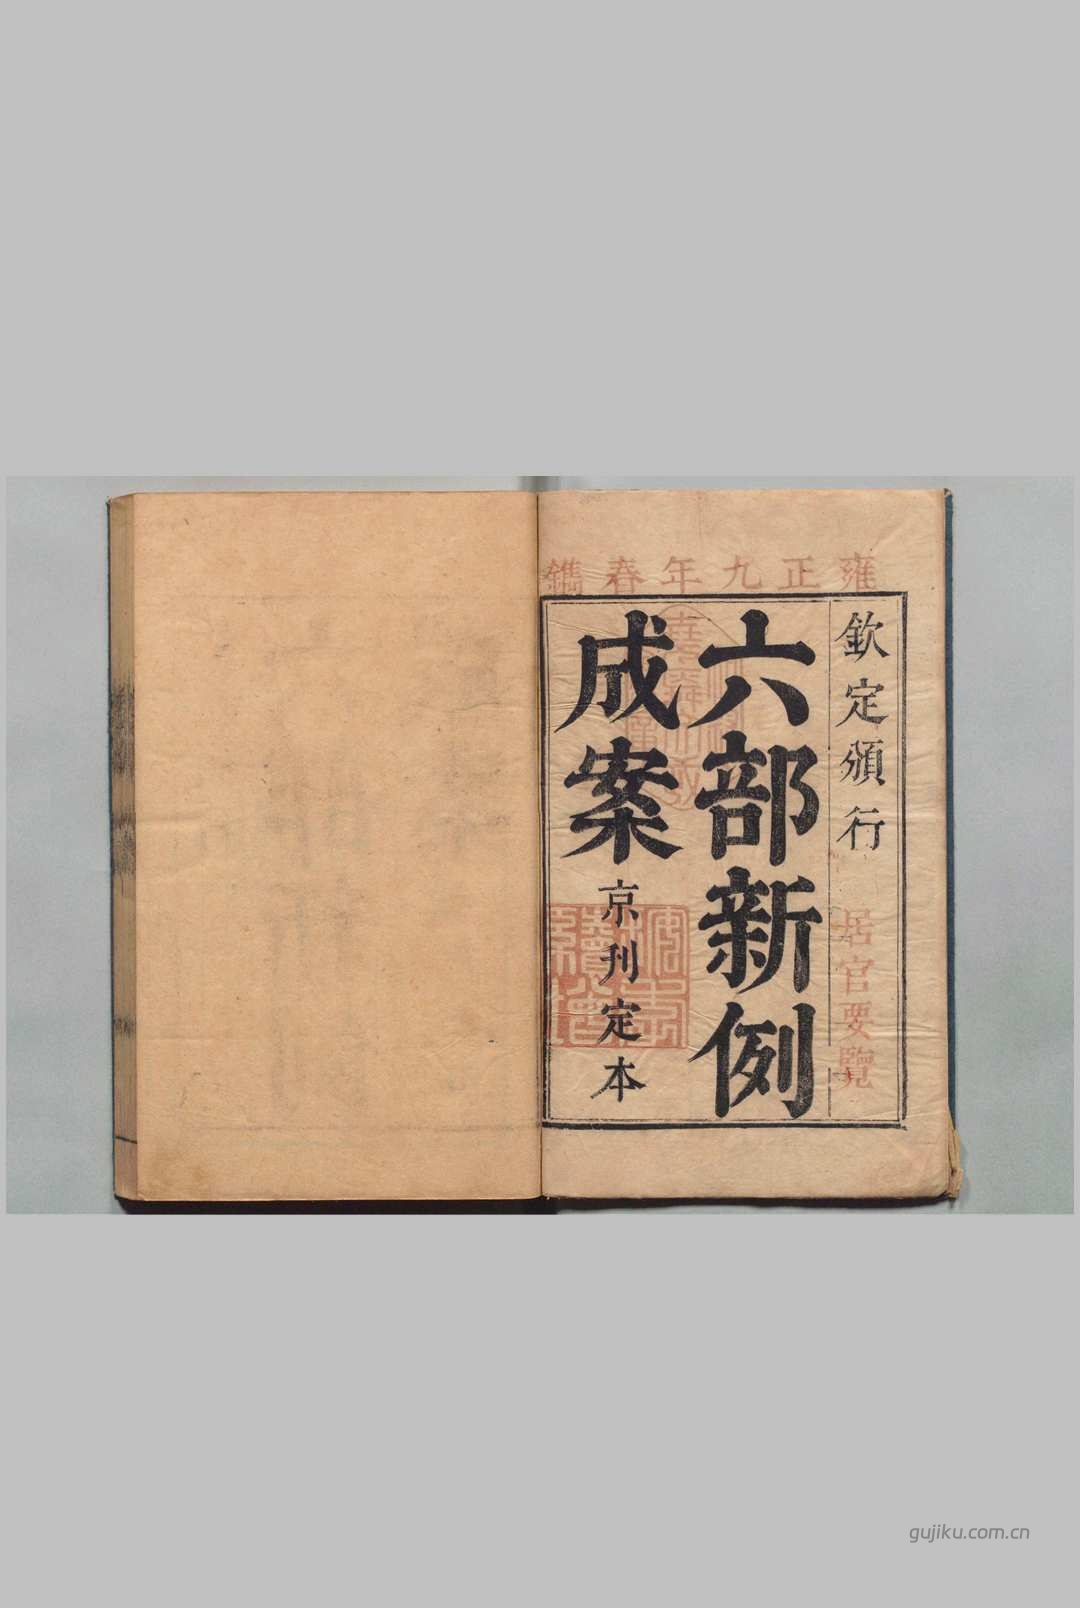 雍正九年春鐫
欽定頒行
居官要覽
六部新例
成案
京刊定本
gujiku.com.cn